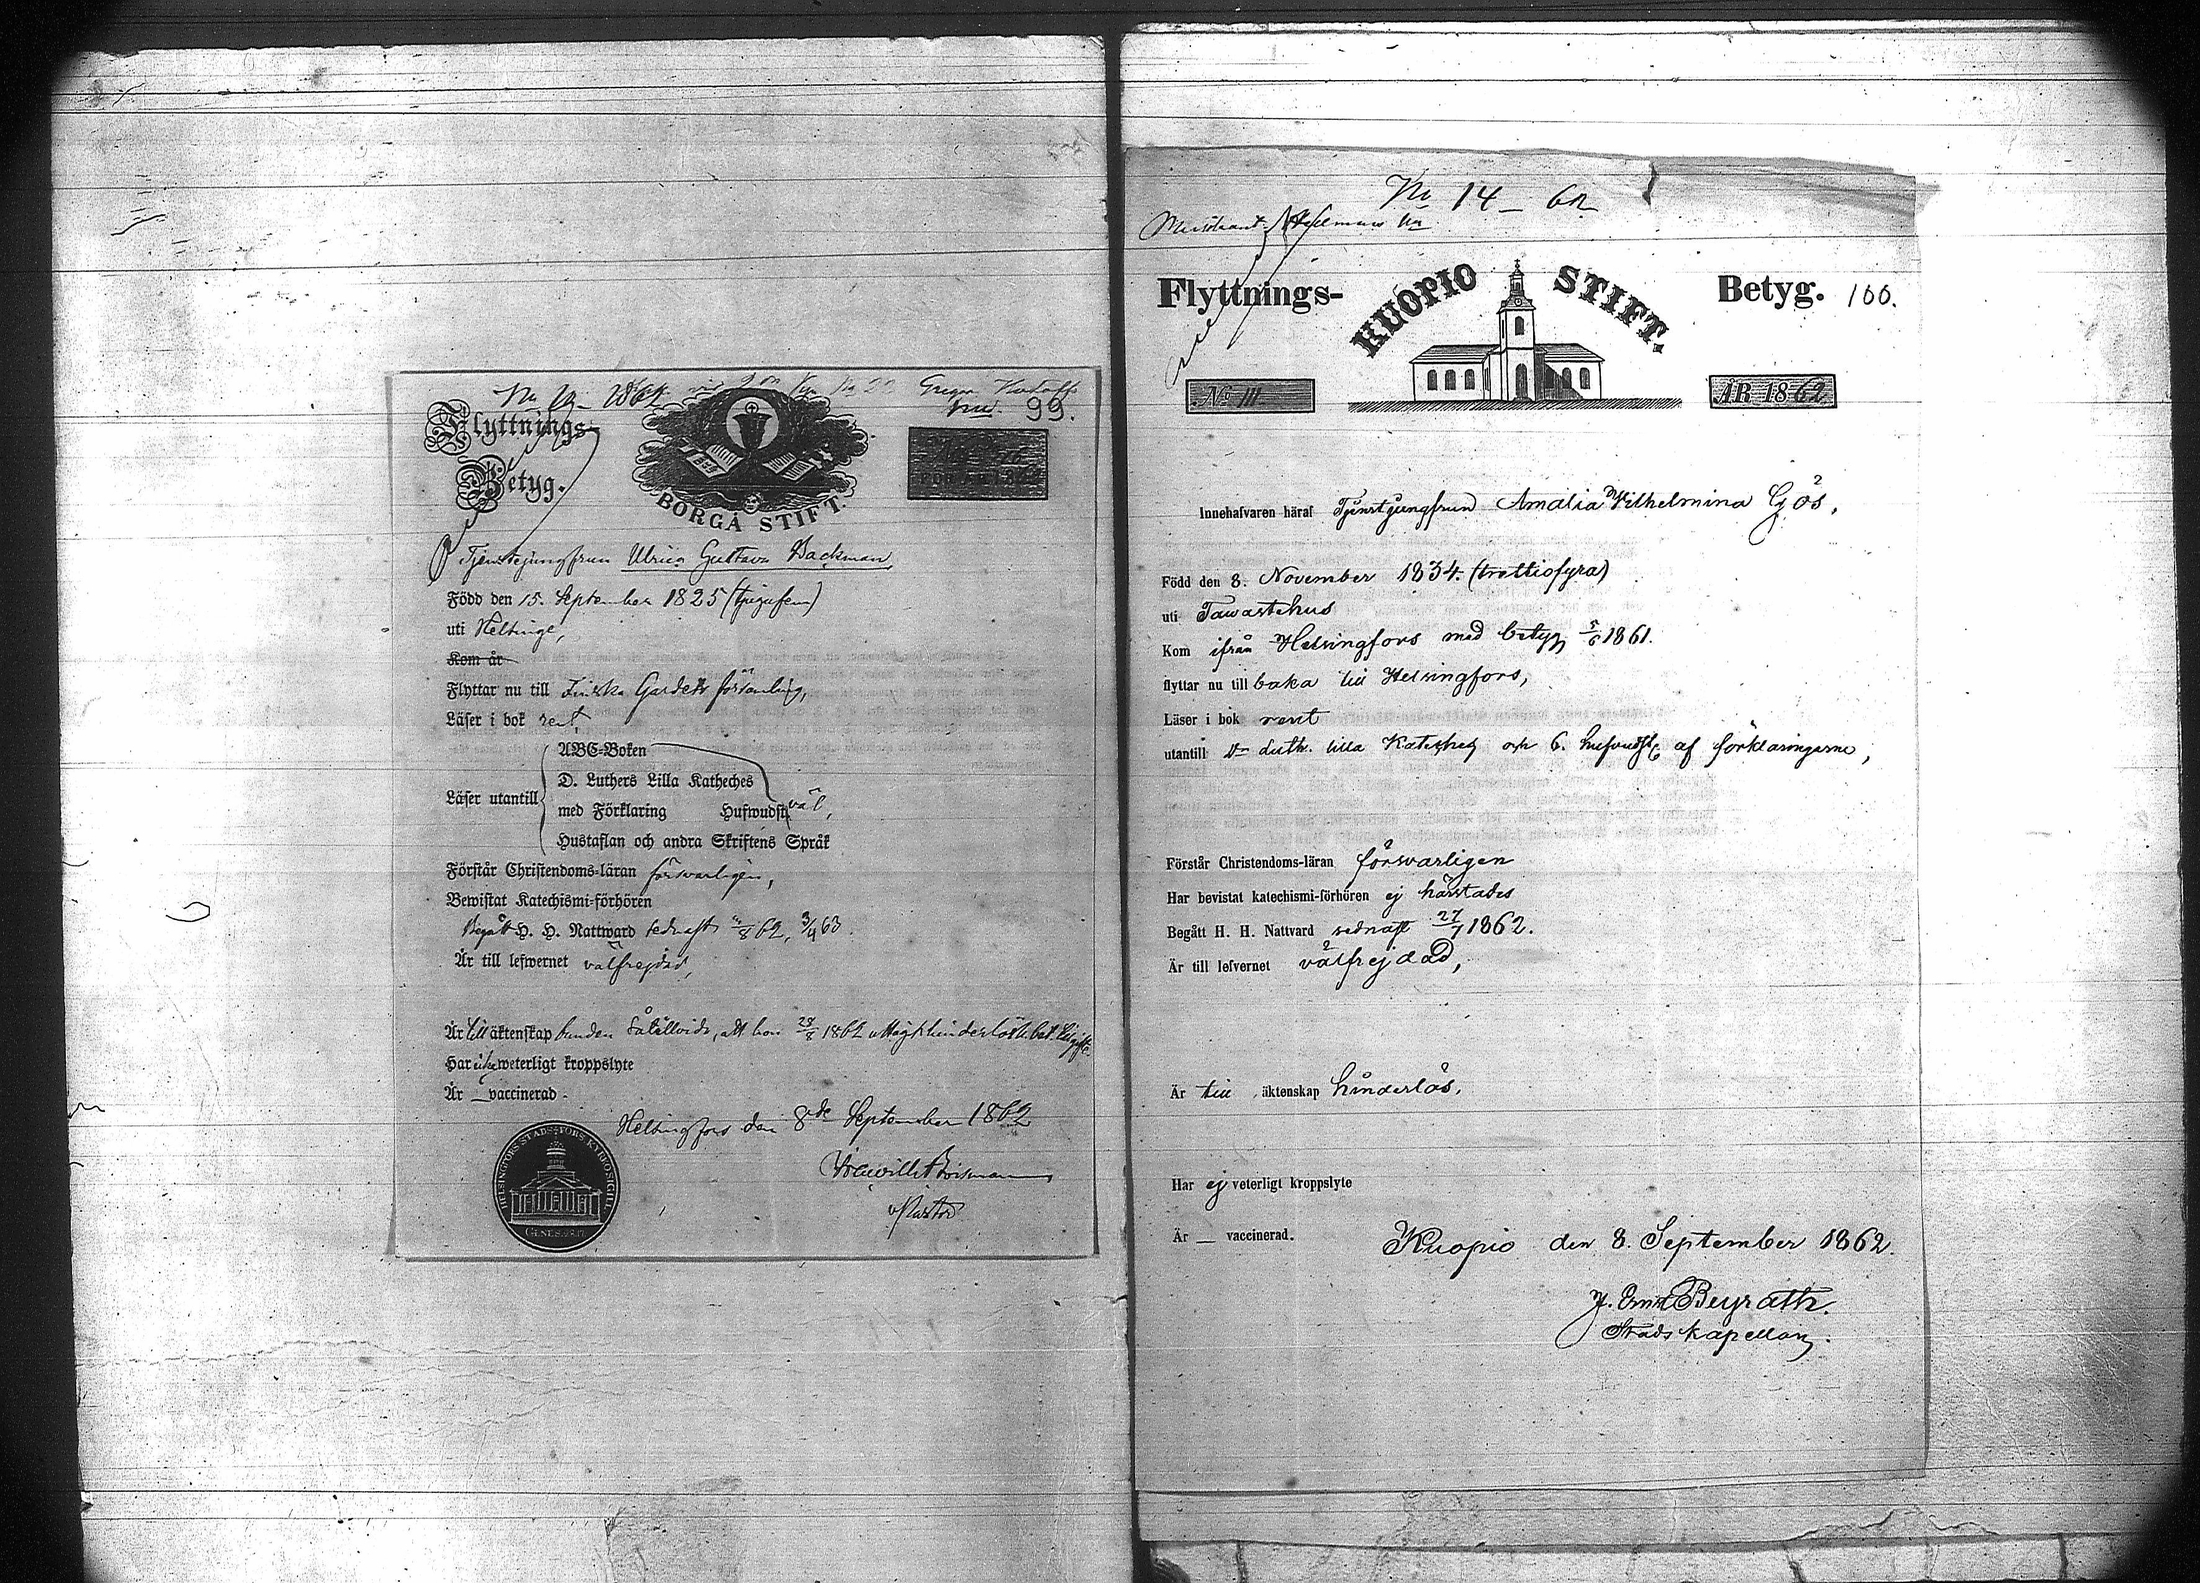 99.
Flyttnings-
Betyg.
BORGÅ STIFT.
Tjenstejungfrun Ulrica Gustava Backman,
Född den 15. September 1825 (tjugufem)
uti Helsinge,
Kom år
Flyttar nu till Finska Gardets församling,
Läser i bok rent
ABC-Boken
D. Luthers Lilla Katheches
Läser utantill med Förklaring Hufwudst. väl,
Hustaflan och andra Skriftens Språk
Förstår Christendoms-läran försvarligen,
Bewistat Katechismi-förhören
Begått H. H. Nattward sednast /8 62, 3/9 63.
Är till lefwernet välfrejdad,
Är till äktenskap bunden sålillvida, att hon 28/8 1862 uttagit hinderlöshets bet.
Har icke weterligt kroppslyte
Är _ vaccinerad.
Helsingfors den 8de September 1862
Pastor
HELSINGFORS STADSFÖRS. KYRKOSIGILL
GENES.
No 14 - 62
Flyttnings- KUOPIO STIFT. Betyg. 100.
No 111. ÅR 1862
Innehafvaren häraf Tjenstjungfrun Amalia Vilhelmina Gjös,
Född den 8. November 1834. (trettiofyra)
uti Tawastehus
Kom ifrån Helsingfors med betyg 5/6 1861.
flyttar nu till baka till Helsingfors,
Läser i bok rent
utantill Dr Luth. lilla Kateches och 6. hufvudst. af förklaringarne,
Förstår Christendoms-läran försvarligen
Har bevistat katechismi-förhören ej härstädes
Begått H. H. Nattvard sednast 27/7 1862.
Är till lefvernet välfrejdad,
Är till äktenskap hinderlös.
Har ej veterligt kroppslyte
Är _ vaccinerad.
Kuopio den 8. September 1862.
J. Ernst Beyrath.
Stads kapellan.